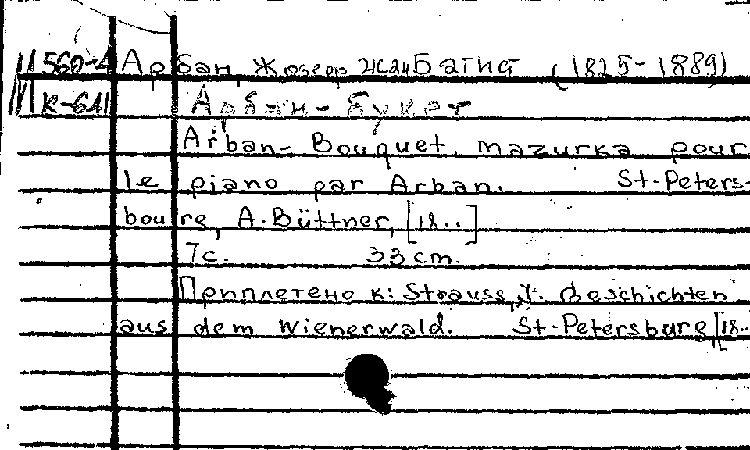 560-4 Арбан, Жозеф Жан Батист (1825-1889)
К-611 Арбан-букет
Arban-Bouquet. mazurka pour
le piano par Arban. St-Peters-
bourg, A. Büttner, [18..]
7с. 33 cm.
Приплетено к: Strauss, J. Geschichten
aus dem Wienerwald. St-Petersburg [18..